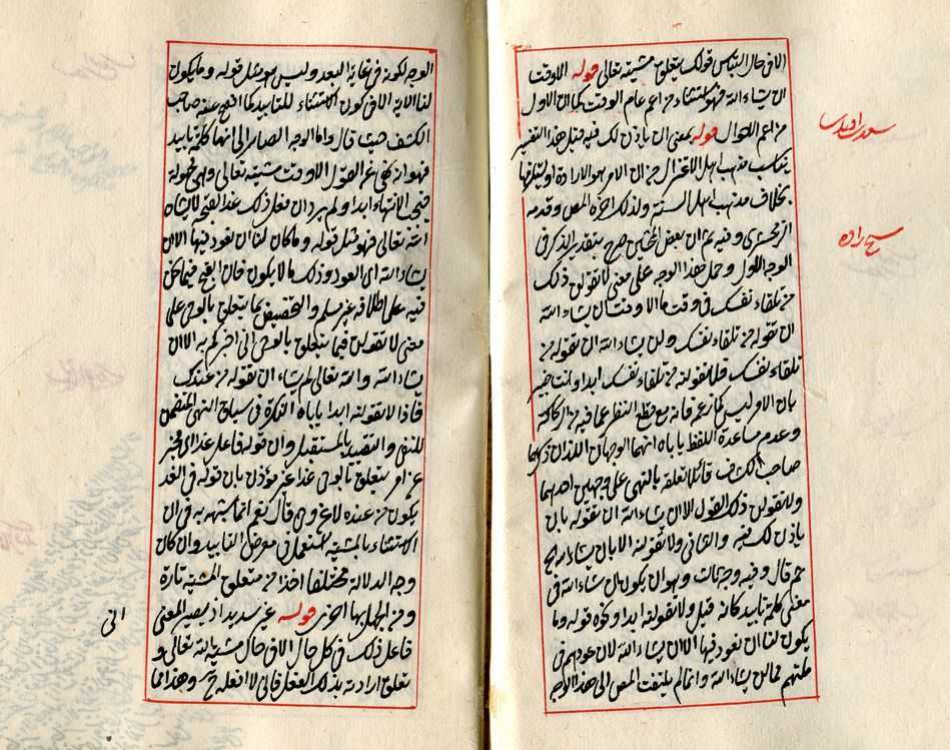 الا في حال التباس قولك بتعلق مشيته تعالى قوله الا وقت
ان يشاء الله فهو استثناء من اعم عام الوقت كما ان الاول
من اعم الاحوال قوله بمعنى ان ياذن لك فيه قيل هذا التفسير
يناسب مذهب اهل الاعتزال من ان الامر هو الارادة او يستلزمها
بخلاف مذهب اهل السنة ولذلك اخره المص وقدمه
الزمخشري وفيه ثم ان بعض المحشين صرح بتقدير الذكر في
الوجه الاول وحمل هذا الوجه على معنى لا تقولن ذلك
من تلقاء نفسك في وقت ما الا وقت ان يشاء الله
ان تقوله من تلقاء نفسك ولن يشاء الله ان تقوله من
تلقاء نفسك فلا تقولنه من تلقاء نفسك ابدا وانت خبير
بان الامر ليس كما زعم فانه مع قطع النظر عما فيه من الركاكة
وعدم مساعدة اللفظ ياباه انهما الوجهان اللذان ذكرهما
صاحب الكشف قائلا تعلقه بالنهي على وجهين احدهما
ولا تقولن ذلك القول الا ان يشاء الله ان تقوله بان
ياذن لك فيه والثاني ولا تقولنه الا بان يشاء الله
ثم قال وفيه وجه ثالث وهو ان يكون ان شاء الله في
معنى كلمة تابيد كانه قيل ولا تقولنه ابدا ونحوه قوله وما
يكون لنا ان نعود فيها الا ان يشاء الله لان عودهم في
ملتهم مما لن يشاء الله وانما لم يلتفت المص الى هذا الوجه
سعدي افندي
شيخ زاده
الوجه لكونه في غاية البعد وليس هو مثل قوله وما يكون
لنا الاية الا في كون الاستثناء للتابيد كما افصح عنه صاحب
الكشف حيث قال واما الوجه الصائر الى انها كلمة تابيد
فهو انه نهي عن القول الا وقت مشيته تعالى وهي مجهولة
فيجب الانتهاء ابدا ولم يرد ان فعل ذلك غدا القبح لا يشاه
الله تعالى فهو مثل قوله وما كان لنا ان نعود فيها الا ان
يشاء الله اي العود وذلك ما لا يكون فان القبح فيما نحن
فيه على اطلاقه غير مسلم والتخصيص بما يتعلق بالوحي على
معنى لا تقولن فيما يتعلق بالوحي اني اخبركم به الا ان
يشاء الله والله تعالى لم يشاء ان تقوله من عندك
فاذا لا تقولنه ابدا ياباه النكرة في سياق النهي المتضمن
للنفي والتقييد بالمستقبل وان قوله فاعل غدا اي مخبر
عن امر يتعلق بالوحي غدا غير مؤذن بان قوله في الغد
يكون من عنده لا عن وحي قال نعم انما يشبهه به في ان
الاستثناء بالمشية استعمل في معرض التابيد وان كان
وجه الدلالة مختلفا اخذا من متعلق المشية تارة
ومن الجهل بها اخرى قوله غير سديد اذ يصير المعنى
فاعل ذلك في كل حال الا في حال مشية الله تعالى و
تعلق ارادته بذلك الفعل فاني لا افعله ح وهذا مما